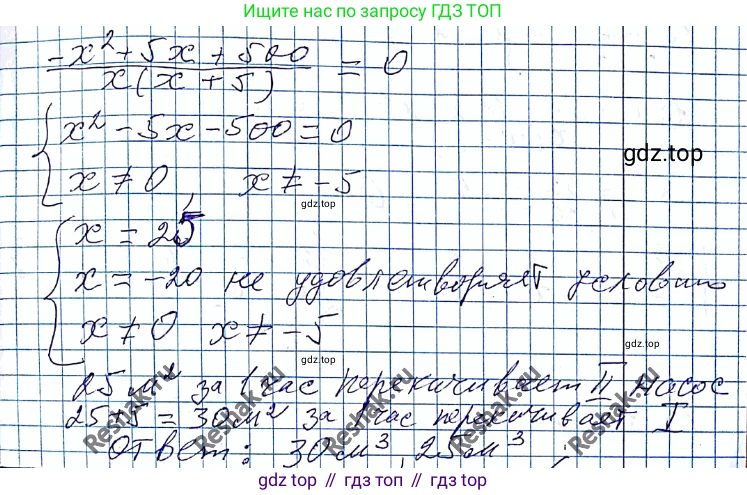 Ищите нас по запросу ГДЗ ТОП
(-x² + 5x + 500) / (x(x + 5)) = 0
{ x² - 5x - 500 = 0
x ≠ 0, x ≠ -5
gdz.top
gdz top
{ x = 25
x = -20 не удовлетворяет условию
x ≠ 0 x ≠ -5
gdz top
gdz top
25 м² за 1 час перекачивает II насос
25+5 = 30 м² за 1 час перекачивает I
Ответ: 30 м³, 25 м³.
Reshak.ru
Reshak.ru
Reshak.ru
Reshak.ru
gdz top // гдз топ // gdz top